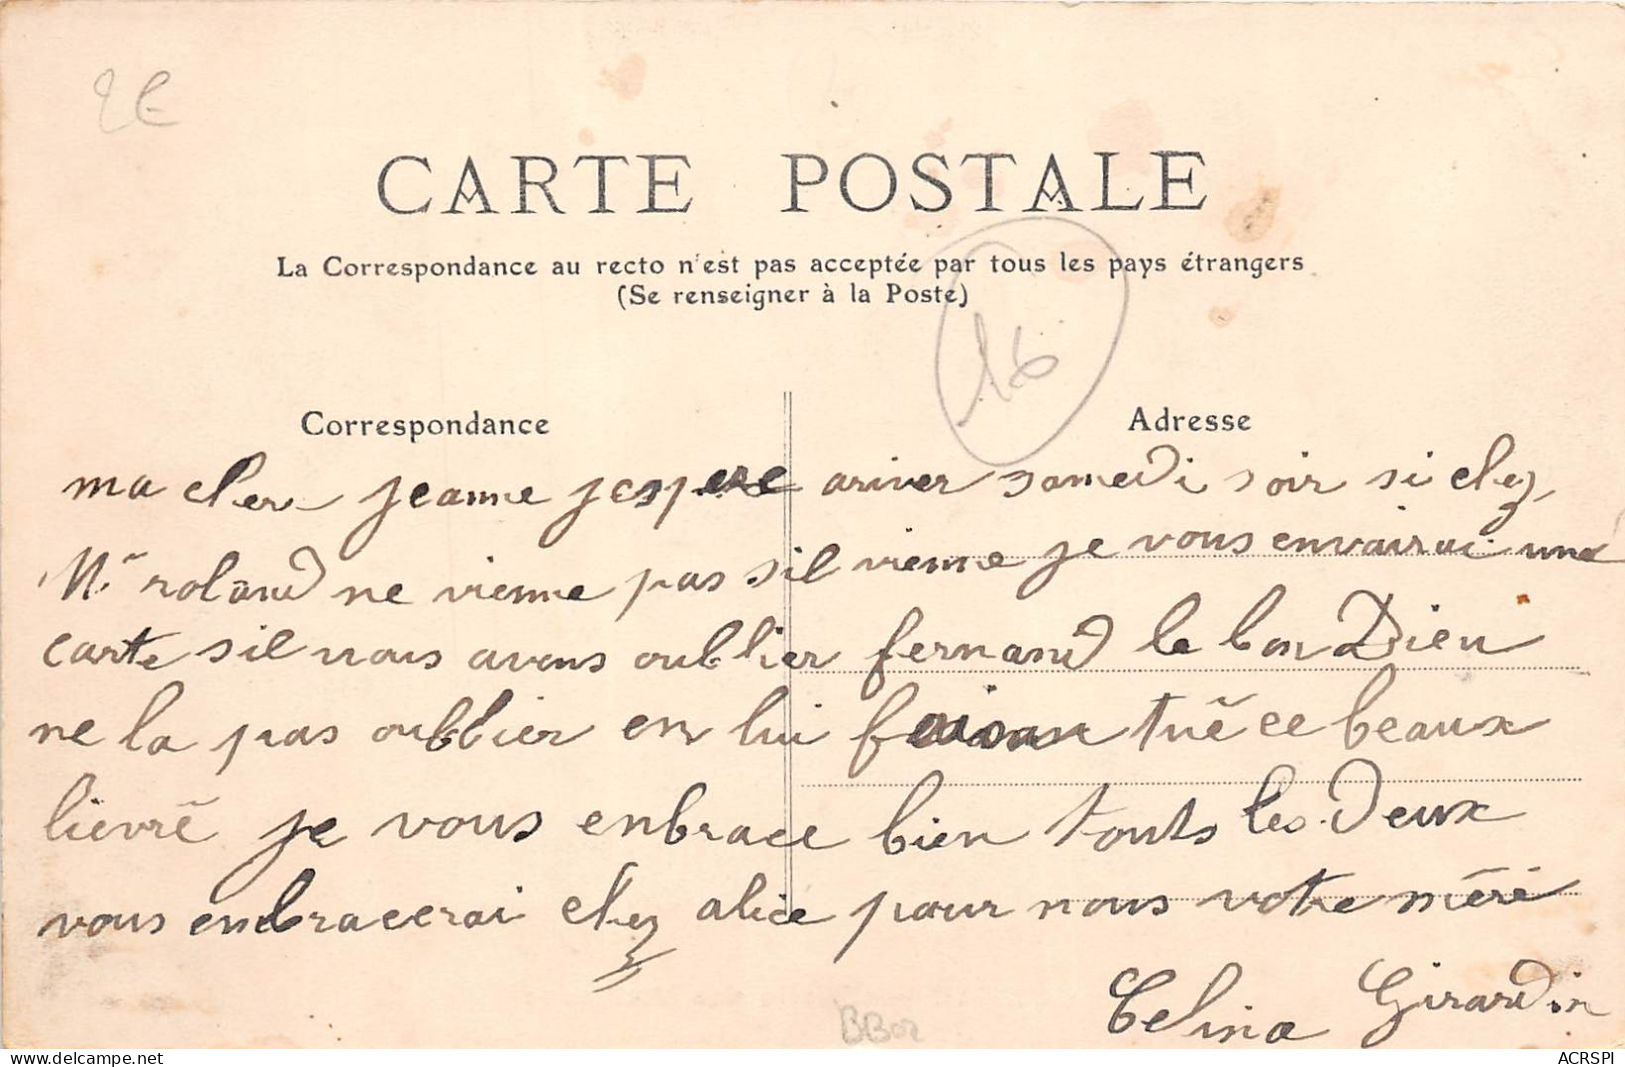 2E
CARTE POSTALE
La Correspondance au recto n'est pas acceptée par tous les pays étrangers
(Se renseigner à la Poste)
16
Correspondance
Adresse
ma cher jeanne jespere ariver samedi soir si chez
Mr roland ne vienne pas sil vienne je vous envairai une
carte sil nous avons oublier fernand le bon Dieu
ne la pas oublier en lui faisan tué ce beaux
lievré je vous enbrace bien touts les deux
vous enbracerai chez alice pour nous votre méré
Celina Girardin
BB02
delcampe.net
ACRSPI